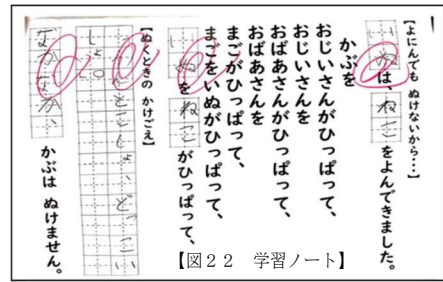 【よにんでも ぬけないから・・・】
いぬは、ねこをよんできました。
かぶを
おじいさんがひっぱって、
おじいさんを
おばあさんがひっぱって、
おばあさんを
まごがひっぱって、
まごをいぬがひっぱって、
いぬをねこがひっぱって、
【ぬくときの かけごえ】
うんとこしょ、どっこい
しょ。
なかなか、かぶは ぬけません。
【図22 学習ノート】